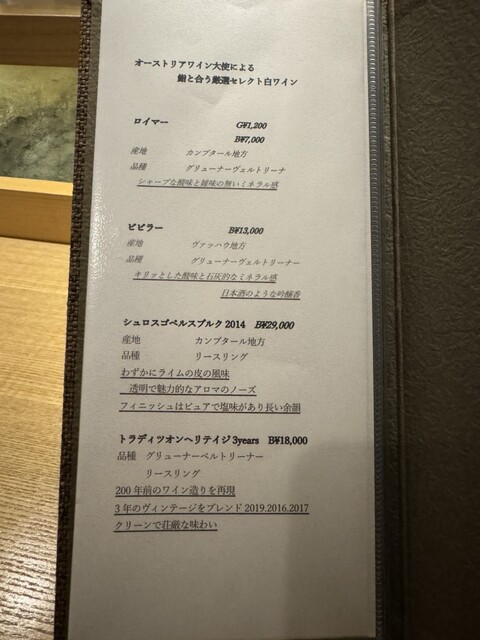 オーストリアワイン大使による
鮨と合う厳選セレクト白ワイン
ロイマー G¥1,200
B¥7,000
産地 カンプタール地方
品種 グリューナーヴェルトリーナ
シャープな酸味と雑味の無いミネラル感
ピヒラー B¥13,000
産地 ヴァッハウ地方
品種 グリューナーヴェルトリーナー
キリッとした酸味と石灰的なミネラル感
日本酒のような吟醸香
シュロスゴベルスブルク 2014 B¥29,000
産地 カンプタール地方
品種 リースリング
わずかにライムの皮の風味
透明で魅力的なアロマのノーズ
フィニッシュはピュアで塩味があり長い余韻
トラディツオンヘリテイジ 3years B¥18,000
品種 グリューナーベルトリーナー
リースリング
200 年前のワイン造りを再現
3 年のヴィンテージをブレンド 2019.2016.2017
クリーンで荘厳な味わい